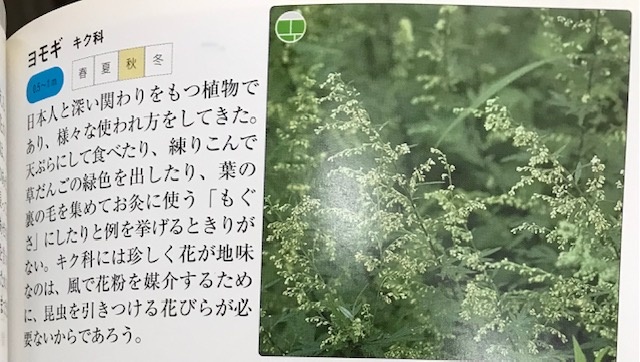 ヨモギ キク科
春 夏 秋 冬
0.5〜1m
日本人と深い関わりをもつ植物で
あり、様々な使われ方をしてきた。
天ぷらにして食べたり、練りこんで
草だんごの緑色を出したり、葉の
裏の毛を集めてお灸に使う「もぐ
さ」にしたりと例を挙げるときりが
ない。キク科には珍しく花が地味
なのは、風で花粉を媒介するため
に、昆虫を引きつける花びらが必
要ないからであろう。